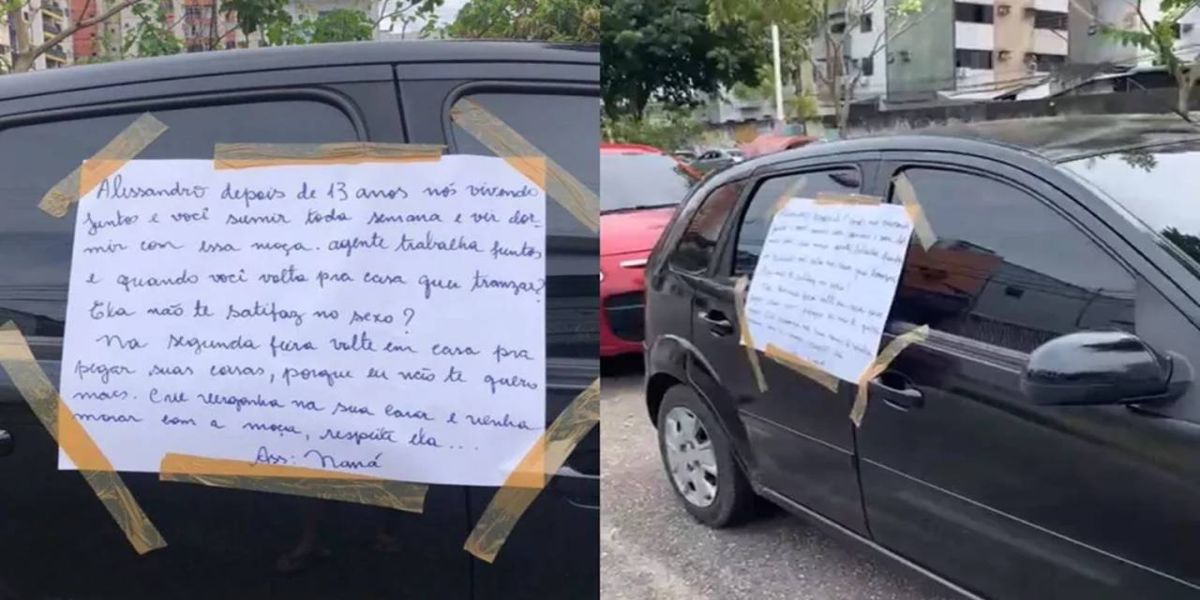 Alissandro depois de 13 anos nós vivendo
juntos e você sumir toda semana e vir dor
mir com essa moça. agente trabalha juntos
e quando você volta pra casa quer tranzar?
Ela não te satifaz no sexo?
Na segunda feira volte em casa pra
pegar suas coisas, porque eu não te quero
mais. Crie vergonha na sua cara e venha
morar com a moça, respeite ela...
Ass: Naná